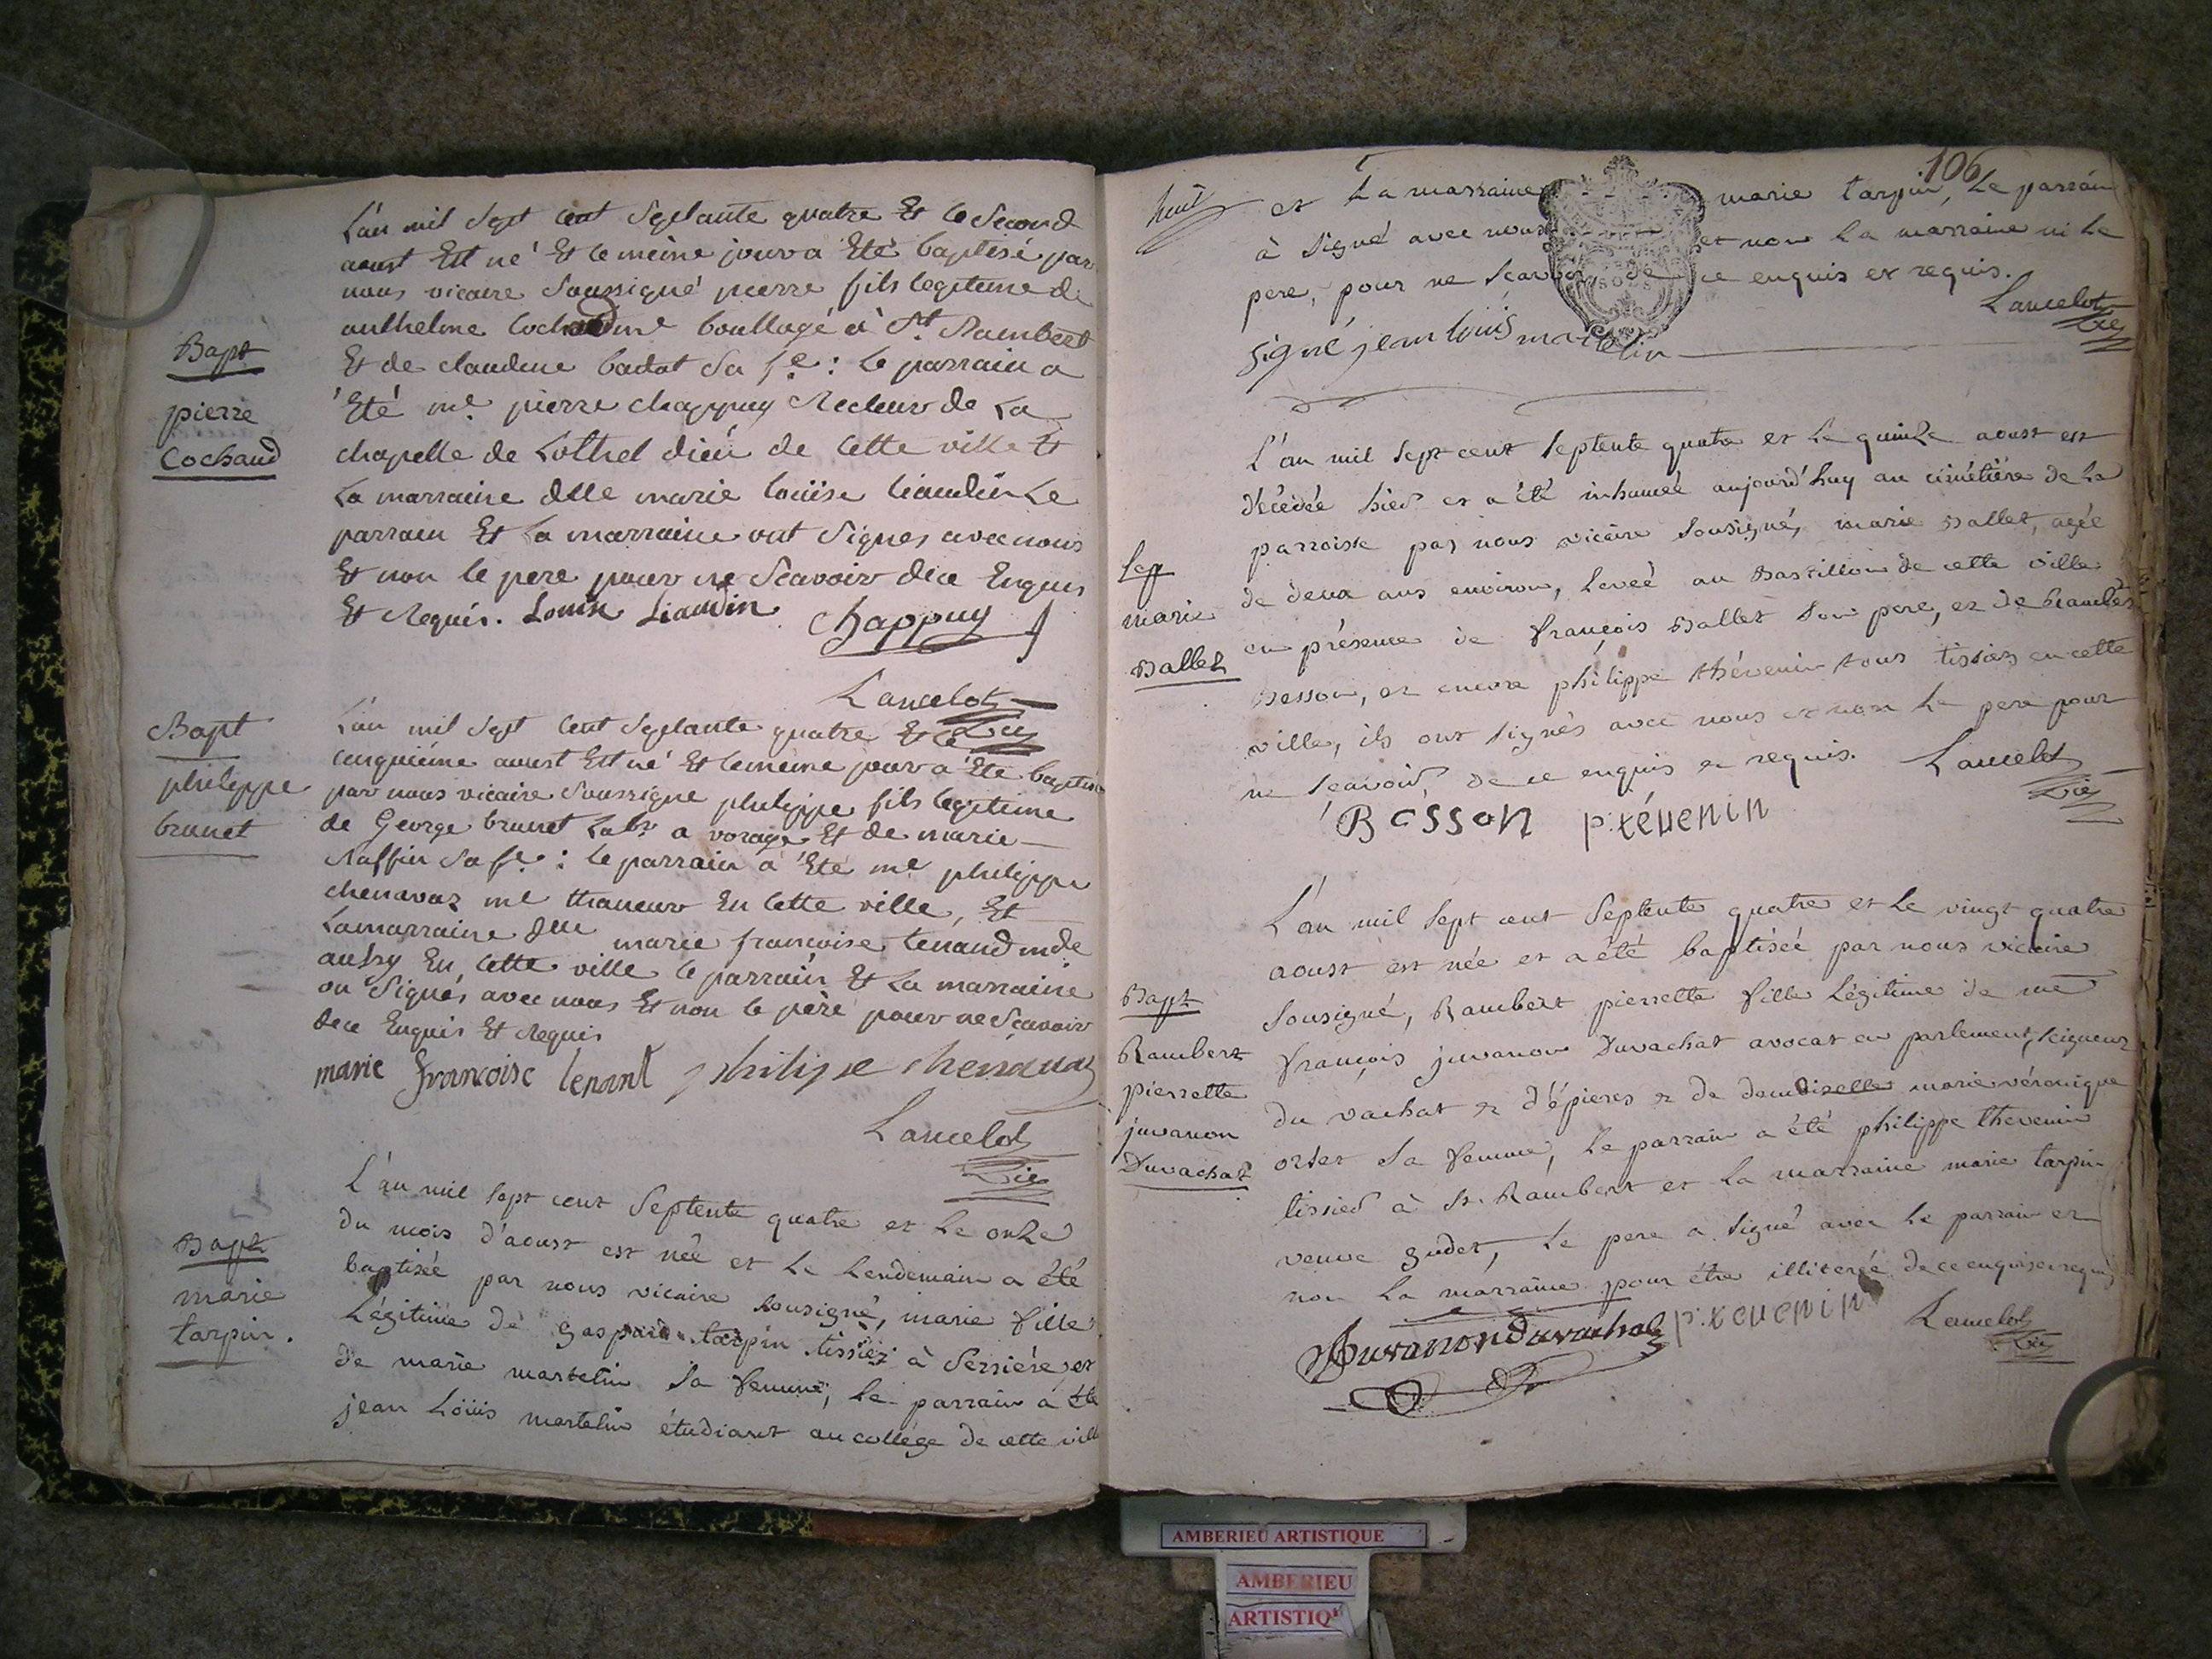 Bapt
pierre
Cochand
L'an mil Sept Cent Septante quatre Et le Second
aoust Est né Et le même jour a Eté baptisé par
nous vicaire Soussigné pierre fils legitime de
anthelme Cochand à St. Rambert
Et de claudine badat Sa fe: le parrain a
Eté me pierre chappuy Recteur de La
chapelle de Lothel dieu de Cette ville Et
La marraine dlle marie Louise Liaudin Le
parrain Et La marraine ont Signés avec nous
Et non le pere pour ne Scavoir de ce Enquis
Et Requis. Louise Liaudin Chappuy
Lancelot
Vic
Bapt
philippe
brunet
L'an mil Sept Cent Septante quatre Et le
cinquième aoust Est né Et le meme jour a Eté baptisé
par nous vicaire Soussigné philippe fils legitime
de George brunet Labr a vorage Et de marie
Raffin Sa fe: le parrain a Eté me philippe
chenavaz me thaneur En Cette ville, Et
La marraine dlle marie francoise tenand mde
aussy En Cette ville le parrain Et La marraine
on Signés avec nous Et non le père pour ne Scavoir
de ce Enquis Et Requis
marie francoise tenant philipe chenavaz
Lancelot
Vic
Bapt
marie
tarpin.
L'an mil Sept cent Septente quatre et Le onze
du mois d'aoust est née et Le Lendemain a été
baptisée par nous vicaire sousigné, marie fille
Légitime de gaspard tarpin tissier à Serriére, et
de marie martelin Sa femme, Le parrain a été
jean Loüis martelin étudiant au collége de cette ville
106
huit
et La marraine marie tarpin, Le parrain
à Signé avec nous et non La marraine ni Le
pere, pour ne Scavoir de ce enquis et requis.
Lancelot
Vic
Signé jean louis martelin
Sep
marie
Ballet
L'an mil Sept cent Septente quatre et Le quinze aoust est
décédée hier et a été inhumée aujourd'huy au cimétiére de La
parroisse par nous vicaire Sousigné, marie Ballet, agée
de deux ans environ, Levée au Bastillon de cette ville
en présence de françois Ballet Son pere, et de
Besson, et encore philippe thévenin tous tissiers en cette
ville, ils ont Signés avec nous et non Le pere pour
ne Scavoir, de ce enquis et requis. Lancelot
Vic
Besson p:tévenin
Bapt
Rambert
pierrette
juvanon
Duvachat
L'an mil Sept cent Septente quatre et Le vingt quatre
aoust est née et a été baptisée par nous vicaire
Sousigné, Rambert pierrette fille Légitime de me
françois juvanon Duvachat avocat en parlement, Seigneur
du vachat et d'épieres et de demoiselle marie véronique
orset Sa femme, Le parrain a été philippe thevenin
tissier à St. Rambert et La marraine marie tarpin
veuve gudet, Le pere a Signé avec Le parrain et
non La marraine pour étre illiterée de ce enquise et requise
Juvanon Duvachat p:tevenin Lancelot
Vic
AMBERIEU ARTISTIQUE
AMBERIEU
ARTISTIQ